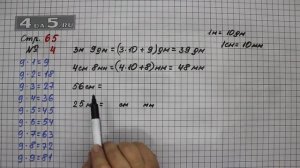 4 DA 5.RU
Стр. 65
№ 4
9·1=9
9·2=18
9·3=27
9·4=36
9·5=45
9·6=54
9·7=63
9·8=72
9·9=81
1м=10дм
1см=10мм
3м 9дм=(3·10+9)дм=39дм
4см 8мм=(4·10+8)мм=48мм
56см=
25 см мм